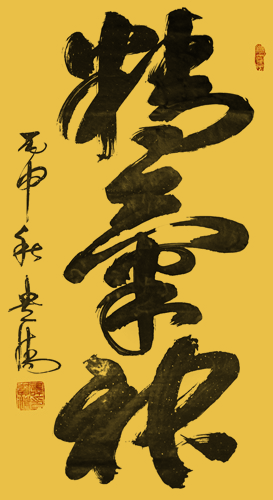 精氣神
丙申秋